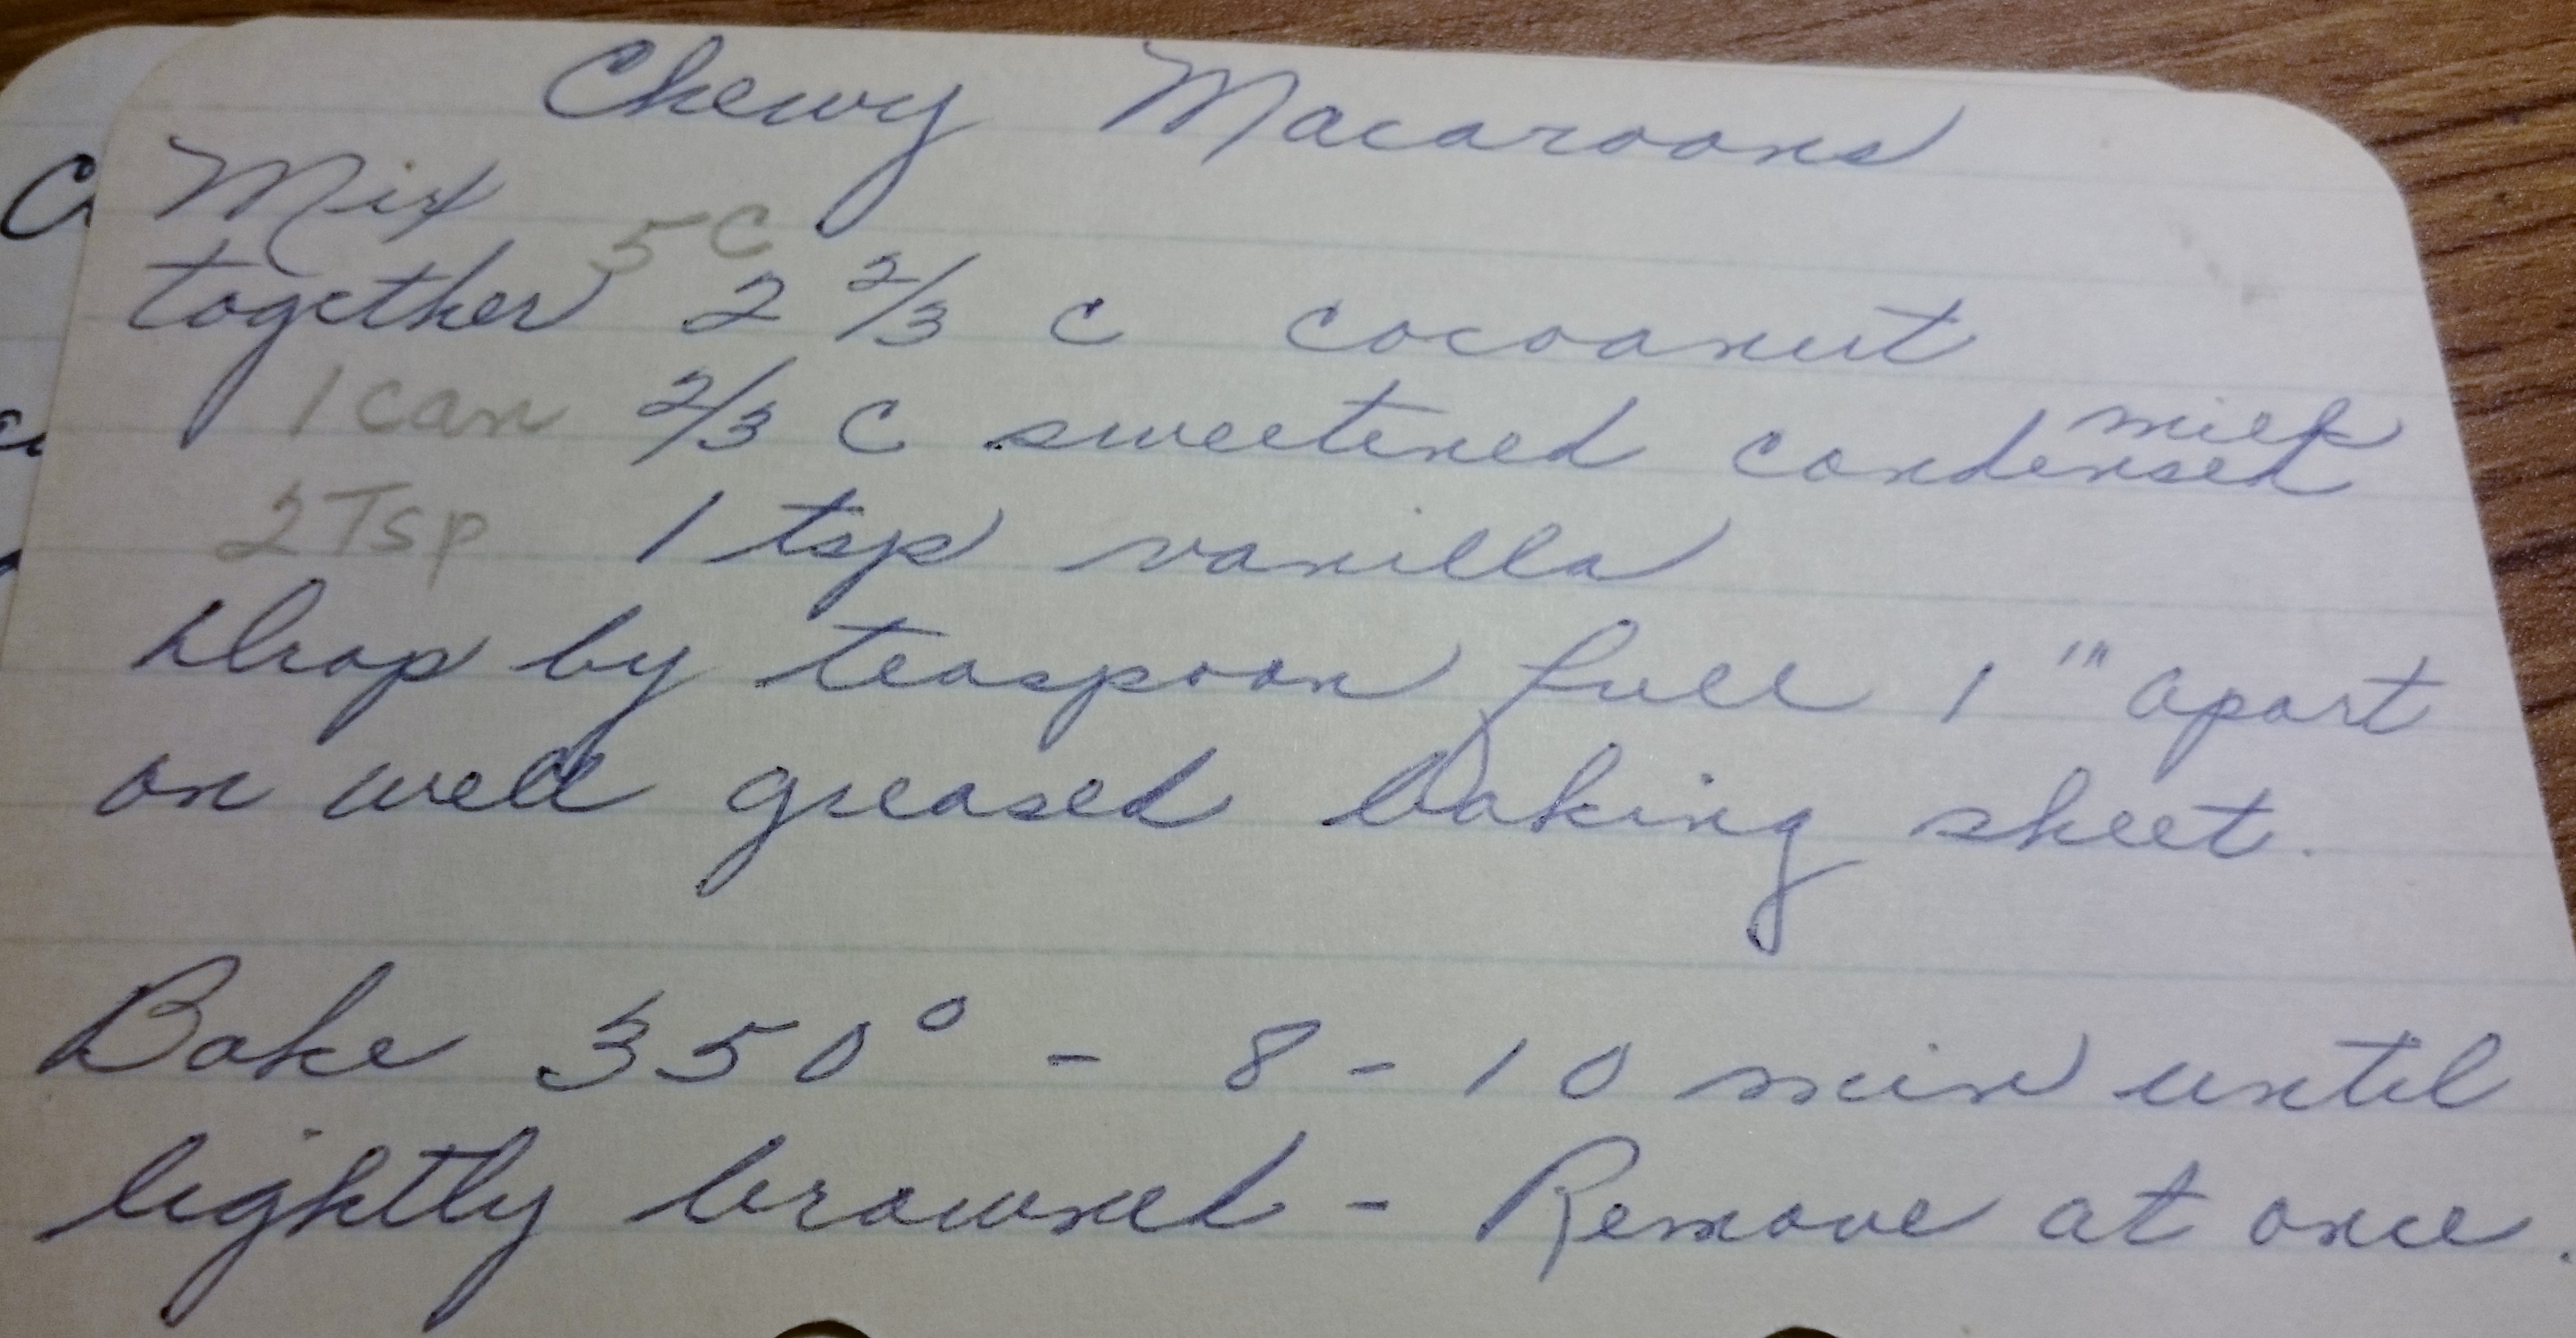 Chewy Macaroons
Mix
5 C
together 2 2/3 c cocoanut
milk
1 can 2/3 C sweetened condensed
2 Tsp 1 tsp vanilla
Drop by teaspoon full 1" apart
on well greased baking sheet.
Bake 350° - 8 - 10 min until
lightly browned - Remove at once.